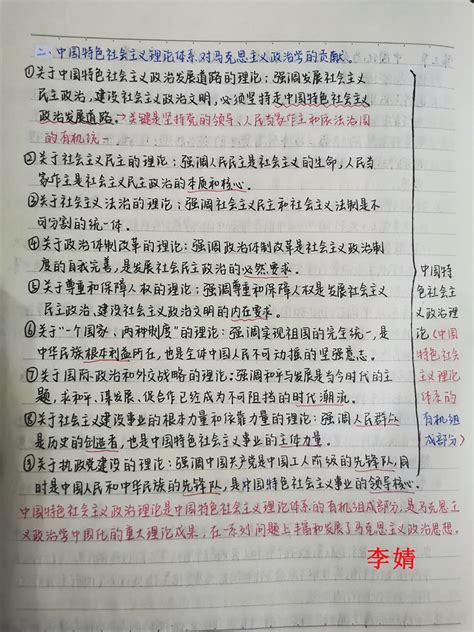 二、中国特色社会主义理论体系对马克思主义政治学的贡献
①关于中国特色社会主义政治发展道路的理论：强调发展社会主义
民主政治，建设社会主义政治文明，必须坚持走中国特色社会主义
政治发展道路。→关键是坚持党的领导、人民当家作主和依法治国
的有机统一
②关于社会主义民主的理论：强调人民民主是社会主义的生命，人民当
家作主是社会主义民主政治的本质和核心。
③关于社会主义法治的理论：强调社会主义民主和社会主义法制是不
可分割的统一体。
④关于政治体制改革的理论：强调政治体制改革是社会主义政治制
度的自我完善，是发展社会主义民主政治的必然要求。
⑤关于尊重和保障人权的理论：强调尊重和保障人权是发展社会主义
民主政治、建设社会主义政治文明的内在要求。
⑥关于“一个国家，两种制度”的理论：强调实现祖国的完全统一，是
中华民族根本利益所在，也是全体中国人民不可动摇的坚强意志。
⑦关于国际政治和外交战略的理论：强调和平与发展是当今时代的主
题，求和平、谋发展、促合作已经成为不可阻挡的时代潮流。
⑧关于社会主义建设事业的根本力量和依靠力量的理论：强调人民群众
是历史的创造者，也是中国特色社会主义事业的主体力量。
⑨关于执政党建设的理论：强调中国共产党是中国工人阶级的先锋队，同
时是中国人民和中华民族的先锋队，是中国特色社会主义事业的领导核心。
中国特色社会主义政治理论（中国特色社会主义理论体系的有机组成部分）
中国特色社会主义政治理论是中国特色社会主义理论体系的有机组成部分，是马克思主
义政治学中国化的重大理论成果，在一系列问题上丰富和发展了马克思主义政治思想。
李婧